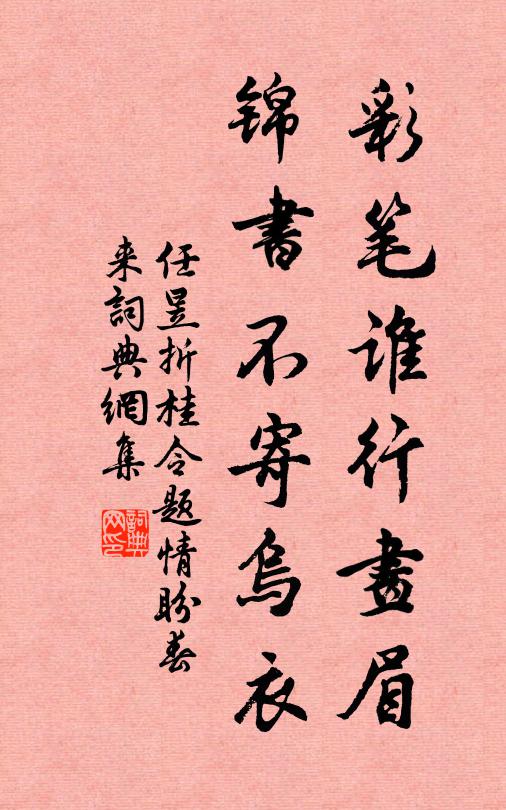 彩笔谁行畫眉
锦書不寄烏衣
任昱折桂令題情盼春
来詞典網集
詞典
网印